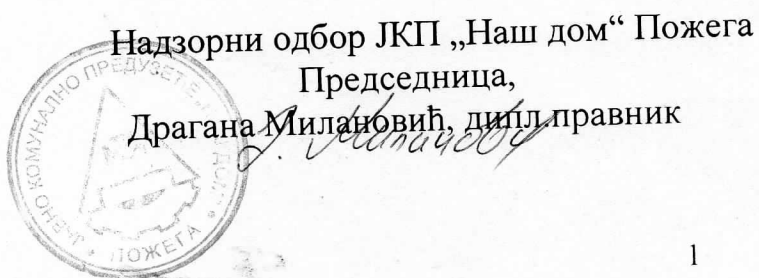 Надзорни одбор ЈКП „Наш дом“ Пожега
Председница,
Драгана Милановић, дипл.правник
КОМУНАЛНО ПРЕДУЗЕЋЕ
ПОЖЕГА
1